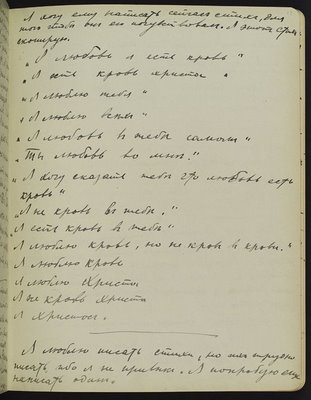 Я хочу ему написать сейчас стихи, для
того чтобы он его почувствовал. Я этот стих
скопирую.
„Я любовь я есть кровь“
„Я есть кровь христа“
„Я люблю тебя“
„Я люблю всех“
„Я любовь в тебе самом“
„Ты любовь во мне.“
„Я хочу сказать тебе что любовь есть
кровь“
„Я не кровь в тебе.“
„Я есть кровь в тебе“
„Я люблю кровь, но не кровь в крови.“
Я люблю кровь
Я люблю Христа
Я не кровь Христа
Я Христос.
Я люблю писать стихи, но мне трудно
писать, ибо я не привык. Я попробую еще
написать один.